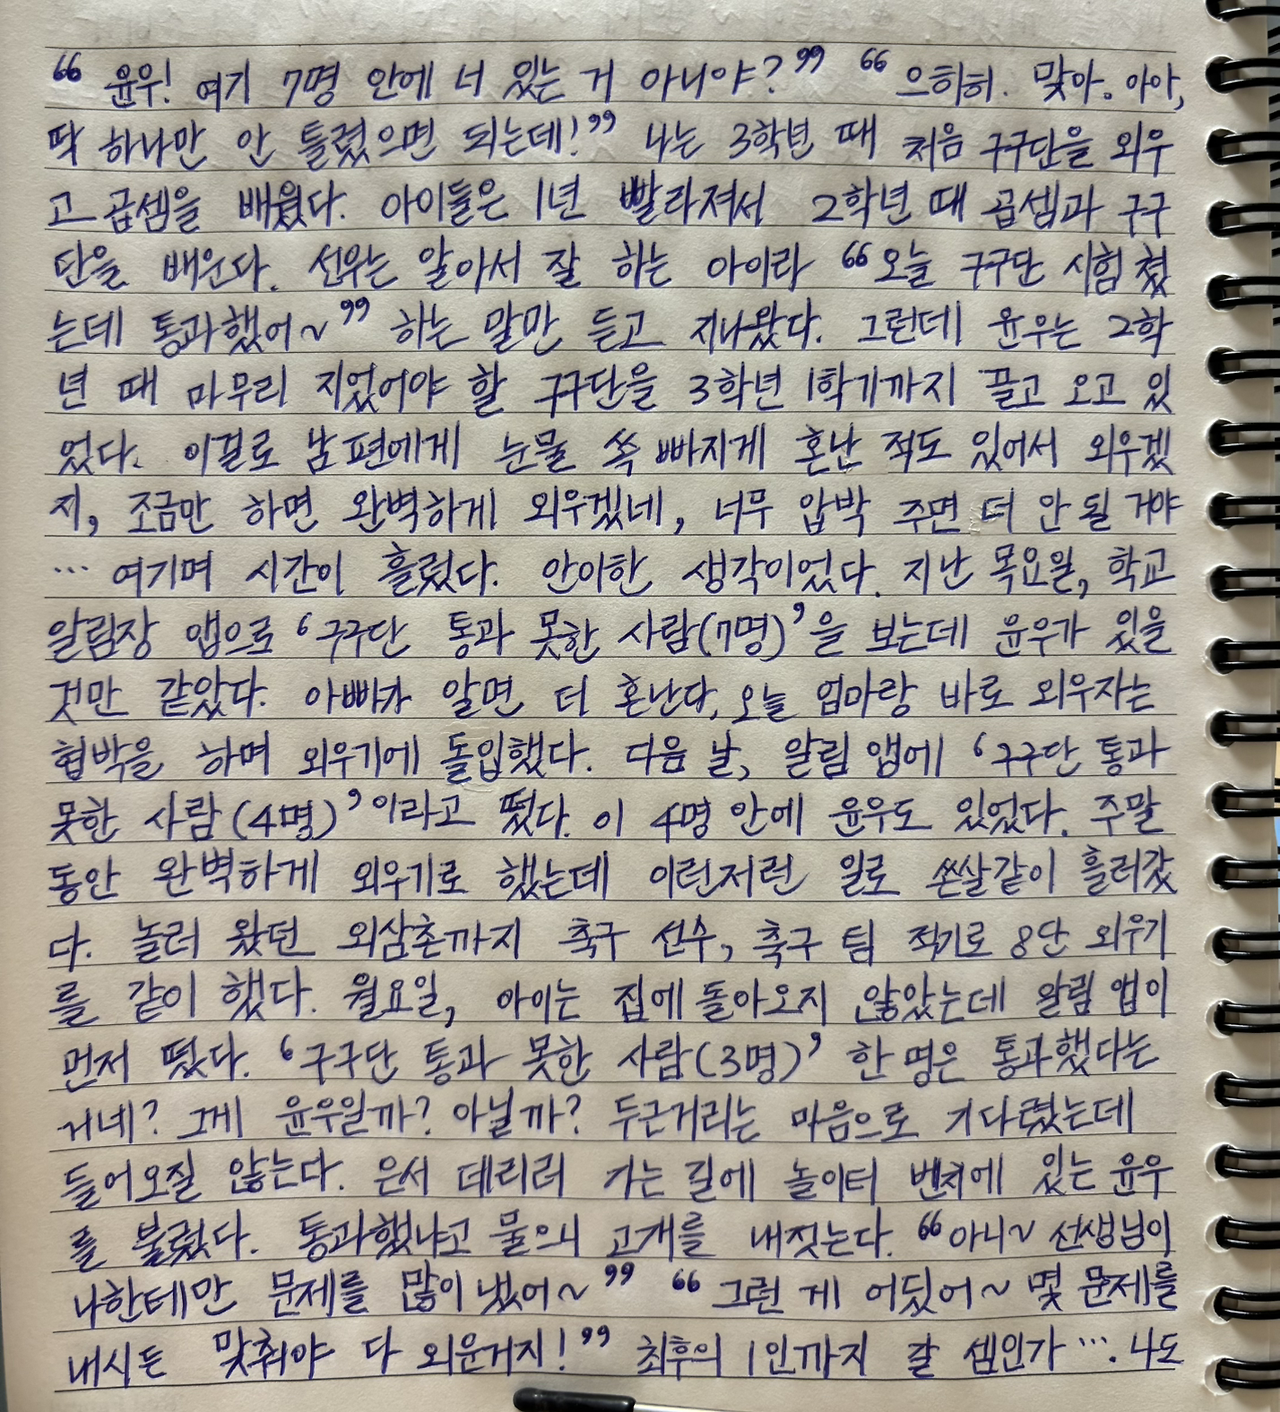 “윤우! 여기 7명 안에 너 있는 거 아니야?” “으히히. 맞아. 아아,
딱 하나만 안 틀렸으면 되는데!” 나는 3학년 때 처음 구구단을 외우
고 곱셈을 배웠다. 아이들은 1년 빨라져서 2학년 때 곱셈과 구구
단을 배운다. 선우는 알아서 잘 하는 아이라 “오늘 구구단 시험 쳤
는데 통과했어~” 하는 말만 듣고 지나왔다. 그런데 윤우는 2학
년 때 마무리 지었어야 할 구구단을 3학년 1학기까지 끌고 오고 있
었다. 이걸로 남편에게 눈물 쏙 빠지게 혼난 적도 있어서 외우겠
지, 조금만 하면 완벽하게 외우겠네, 너무 압박 주면 더 안 될 거야
… 여기며 시간이 흘렀다. 안이한 생각이었다. 지난 목요일, 학교
알림장 앱으로 ‘구구단 통과 못한 사람(7명)’을 보는데 윤우가 있을
것만 같았다. 아빠가 알면 더 혼난다, 오늘 엄마랑 바로 외우자는
협박을 하며 외우기에 돌입했다. 다음 날, 알림 앱에 ‘구구단 통과
못한 사람(4명)’이라고 떴다. 이 4명 안에 윤우도 있었다. 주말
동안 완벽하게 외우기로 했는데 이런저런 일로 쏜살같이 흘러갔
다. 놀러 왔던 외삼촌까지 축구 선수, 축구 팀 적기로 8단 외우기
를 같이 했다. 월요일, 아이는 집에 돌아오지 않았는데 알림 앱이
먼저 떴다. ‘구구단 통과 못한 사람(3명)’ 한 명은 통과했다는
거네? 그게 윤우일까? 아닐까? 두근거리는 마음으로 기다렸는데
들어오질 않는다. 은서 데리러 가는 길에 놀이터 벤치에 있는 윤우
를 불렀다. 통과했냐고 물으니 고개를 내젓는다. “아니~ 선생님이
나한테만 문제를 많이 냈어~” “그런 게 어딨어~ 몇 문제를
내시든 맞춰야 다 외운거지!” 최후의 1인까지 갈 셈인가…. 나도